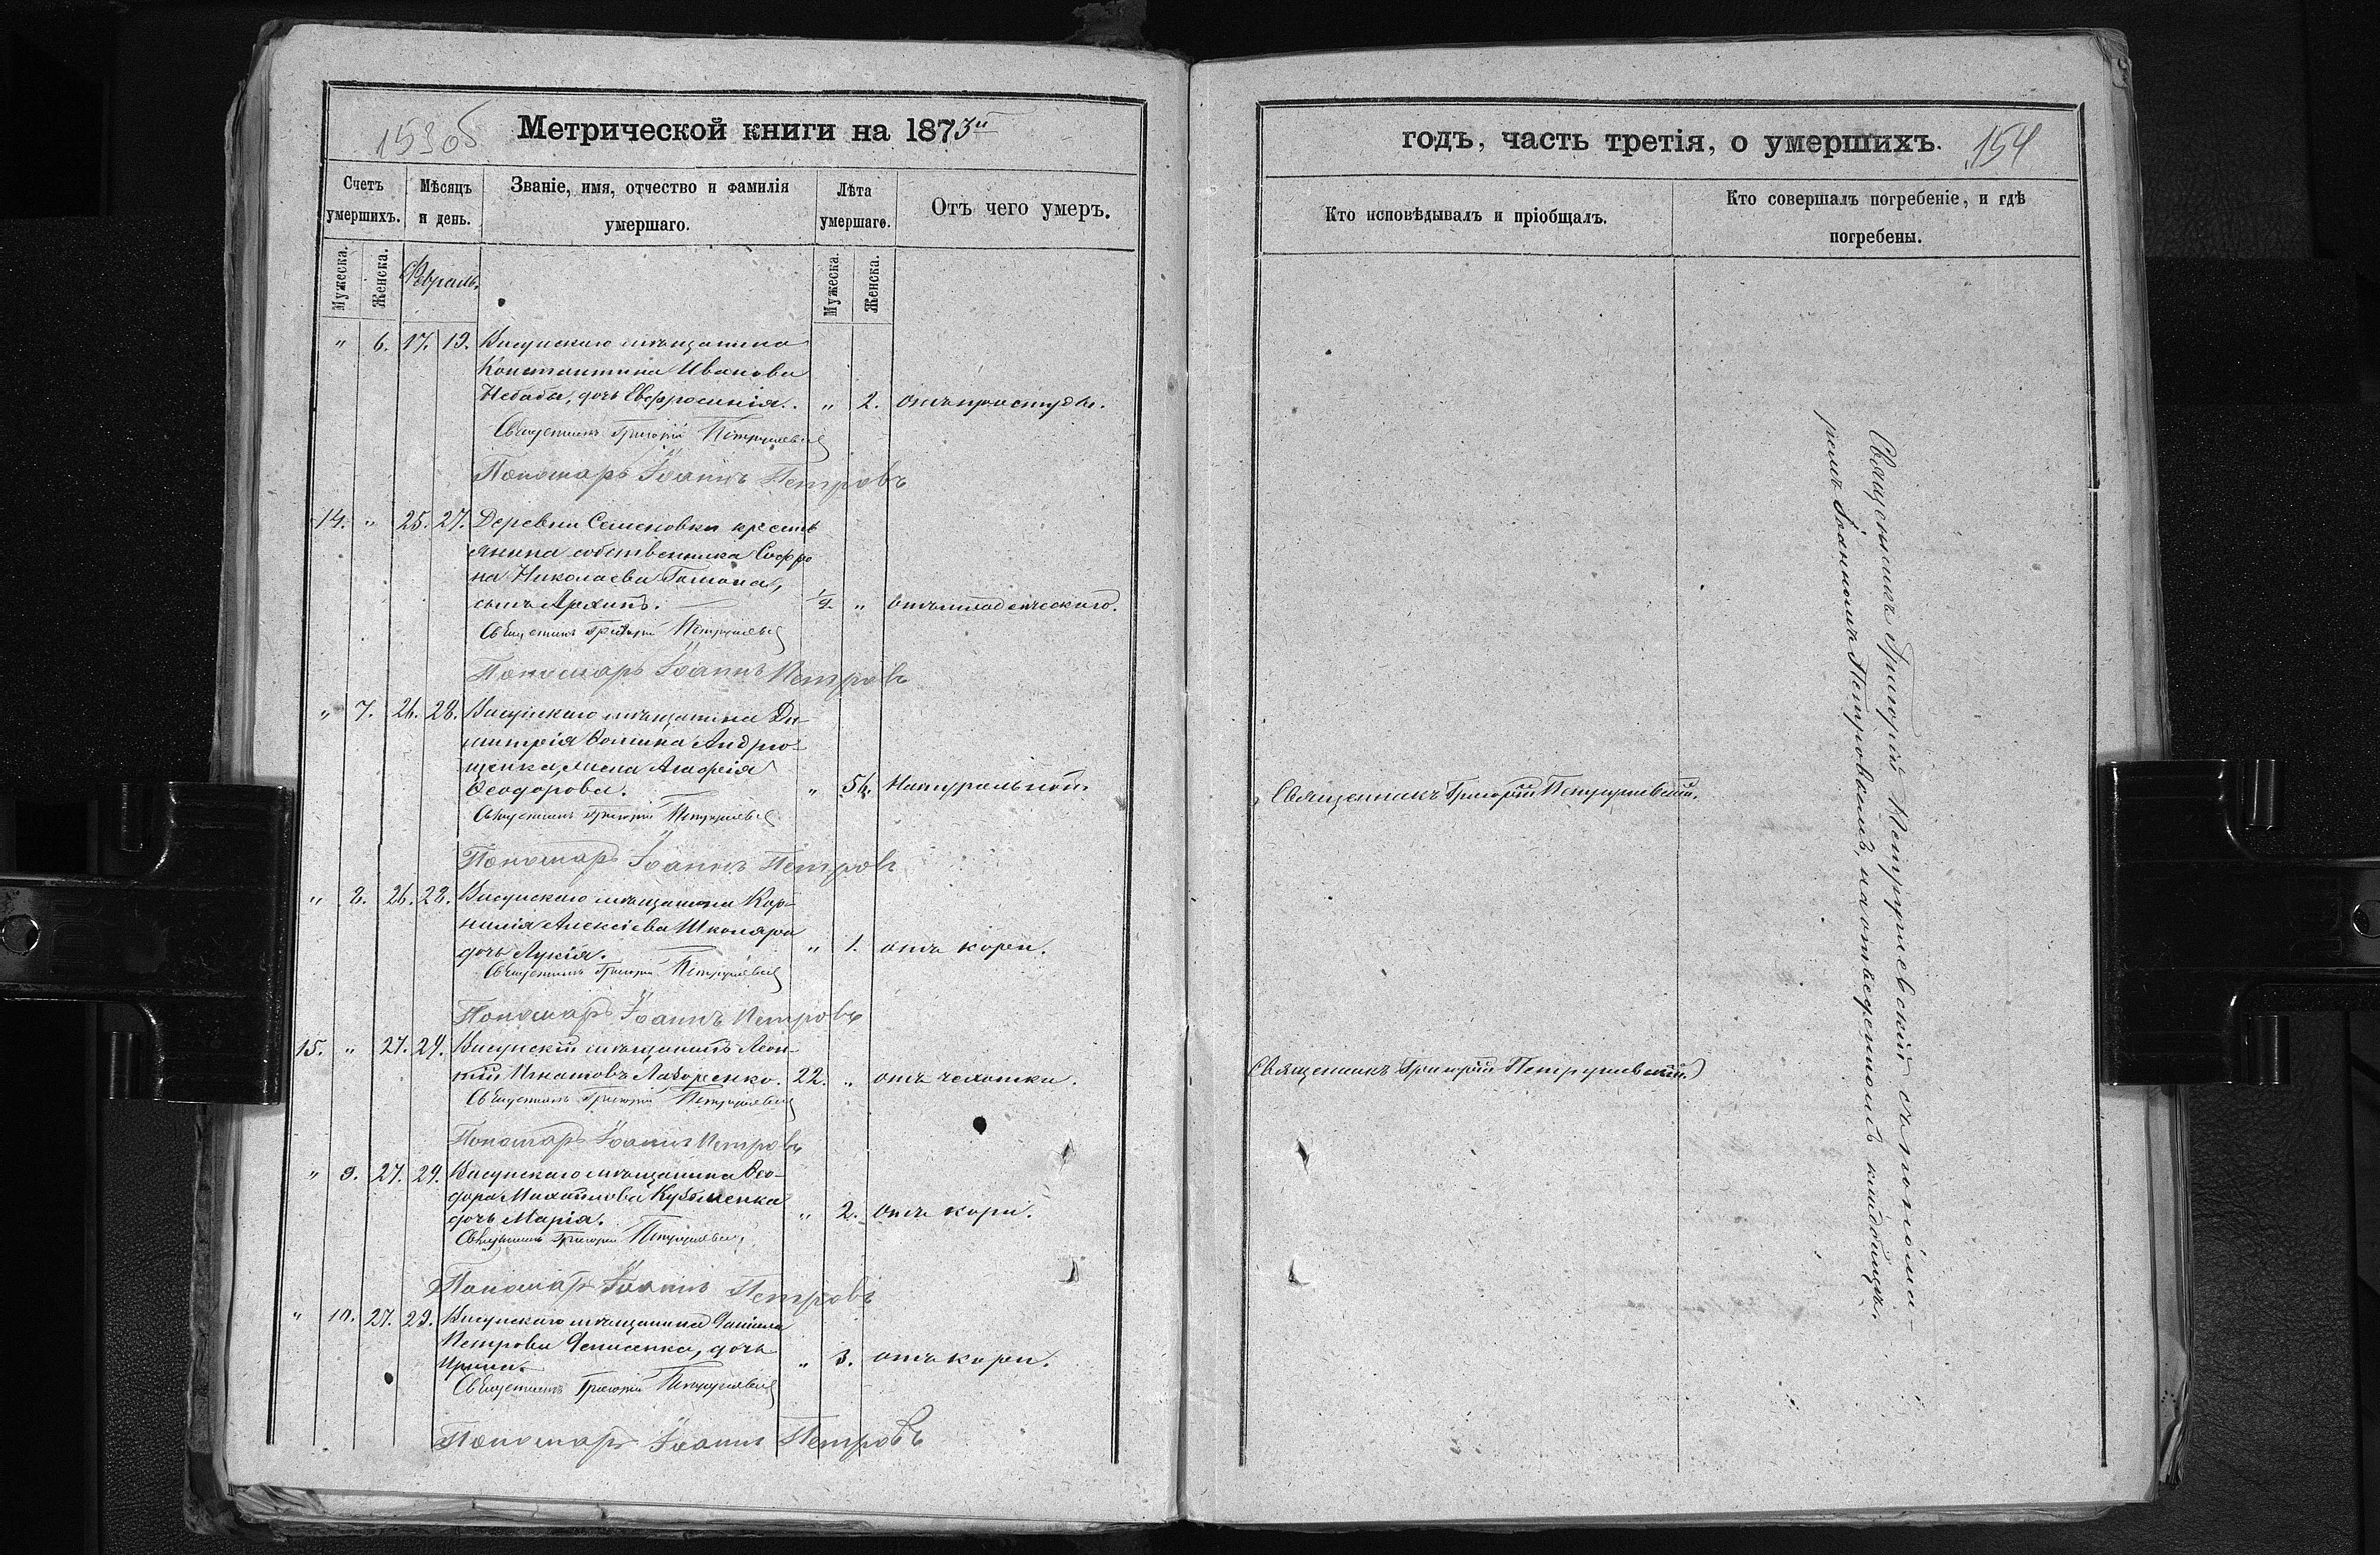 153об
Метрической книги на 1873й
Счетъ умершихъ.
Мѣсяцъ и день.
Званіе, имя, отчество и фамилія умершаго.
Лѣта умершаго.
Отъ чего умеръ.
Мужеска.
Женска.
Февраль.
Мужеска.
Женска.
" 6. 17. 19. Висунскаго мѣщанина
Константина Иванова
Небабы, дочь Евфросинія. " 2. отъ простуды.
Священникъ Григорій Петрушевскій
Пономарь Іоаннъ Петровъ
14. " 25. 27. Деревни Семеновки кресть
янина собственника Софро
на Николаева
сынъ Архипъ. 1/2 " отъ младенческаго.
Священникъ Григорій Петрушевскій
Пономарь Іоаннъ Петровъ
" 7. 26. 28. Висунскаго мѣщанина Ди-
митрія Фомина Андрю-
щенка, жена Агафія
Феодорова. " 56. Натуральной.
Священникъ Григорій Петрушевскій
Пономарь Іоаннъ Петровъ
" 8. 26. 28. Висунскаго мѣщанина Кор-
нилія Алексіева Школяра
дочь Лукія. " 1. отъ кори.
Священникъ Григорій Петрушевскій
Пономарь Іоаннъ Петровъ
15. " 27. 29. Висунскій мѣщанинъ Леон-
тій Игнатовъ Лазоренко. 22. " отъ чахотки.
Священникъ Григорій Петрушевскій
Пономарь Іоаннъ Петровъ
" 9. 27. 29. Висунскаго мѣщанина Фео-
дора Михайлова Кузьменка
дочь Марія. " 2. отъ кори.
Священникъ Григорій Петрушевскій
Пономарь Іоаннъ Петровъ
" 10. 27. 29. Висунскаго мѣщанина Даніила
Петрова Денисенка, дочь
Ирина. " 3. отъ кори.
Священникъ Григорій Петрушевскій
Пономарь Іоаннъ Петровъ
годъ, часть третія, о умершихъ.
154
Кто исповѣдывалъ и пріобщалъ.
Кто совершалъ погребеніе, и гдѣ погребены.
Священникъ Григорій Петрушевскій.
Священникъ Григорій Петрушевскій.
Священникъ Григорій Петрушевскій съ понома-
ремъ Іоанномъ Петровымъ, на отведенномъ кладбищѣ.